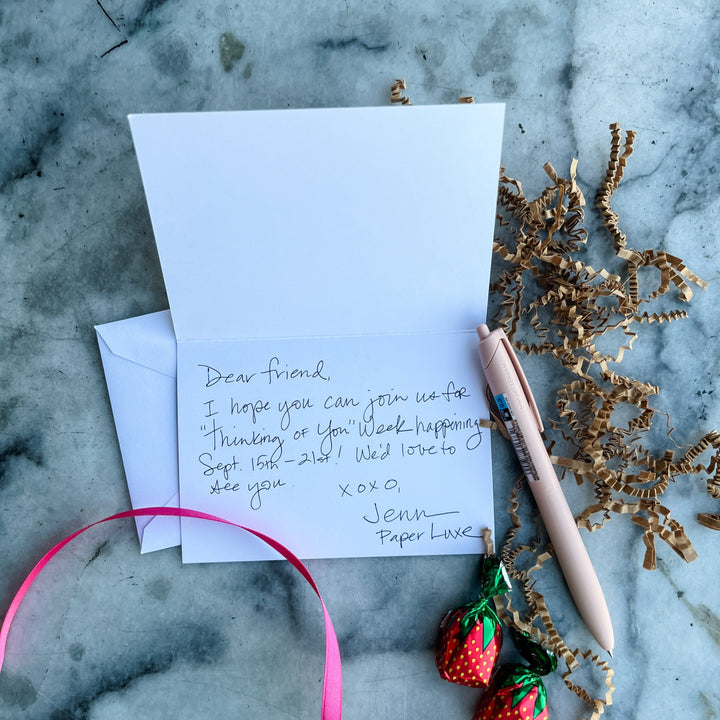 Dear friend,
I hope you can join us for
"Thinking of You" Week happening
Sept. 15th - 21st! We'd love to
see you.
xoxo,
Jenn
Paper Luxe